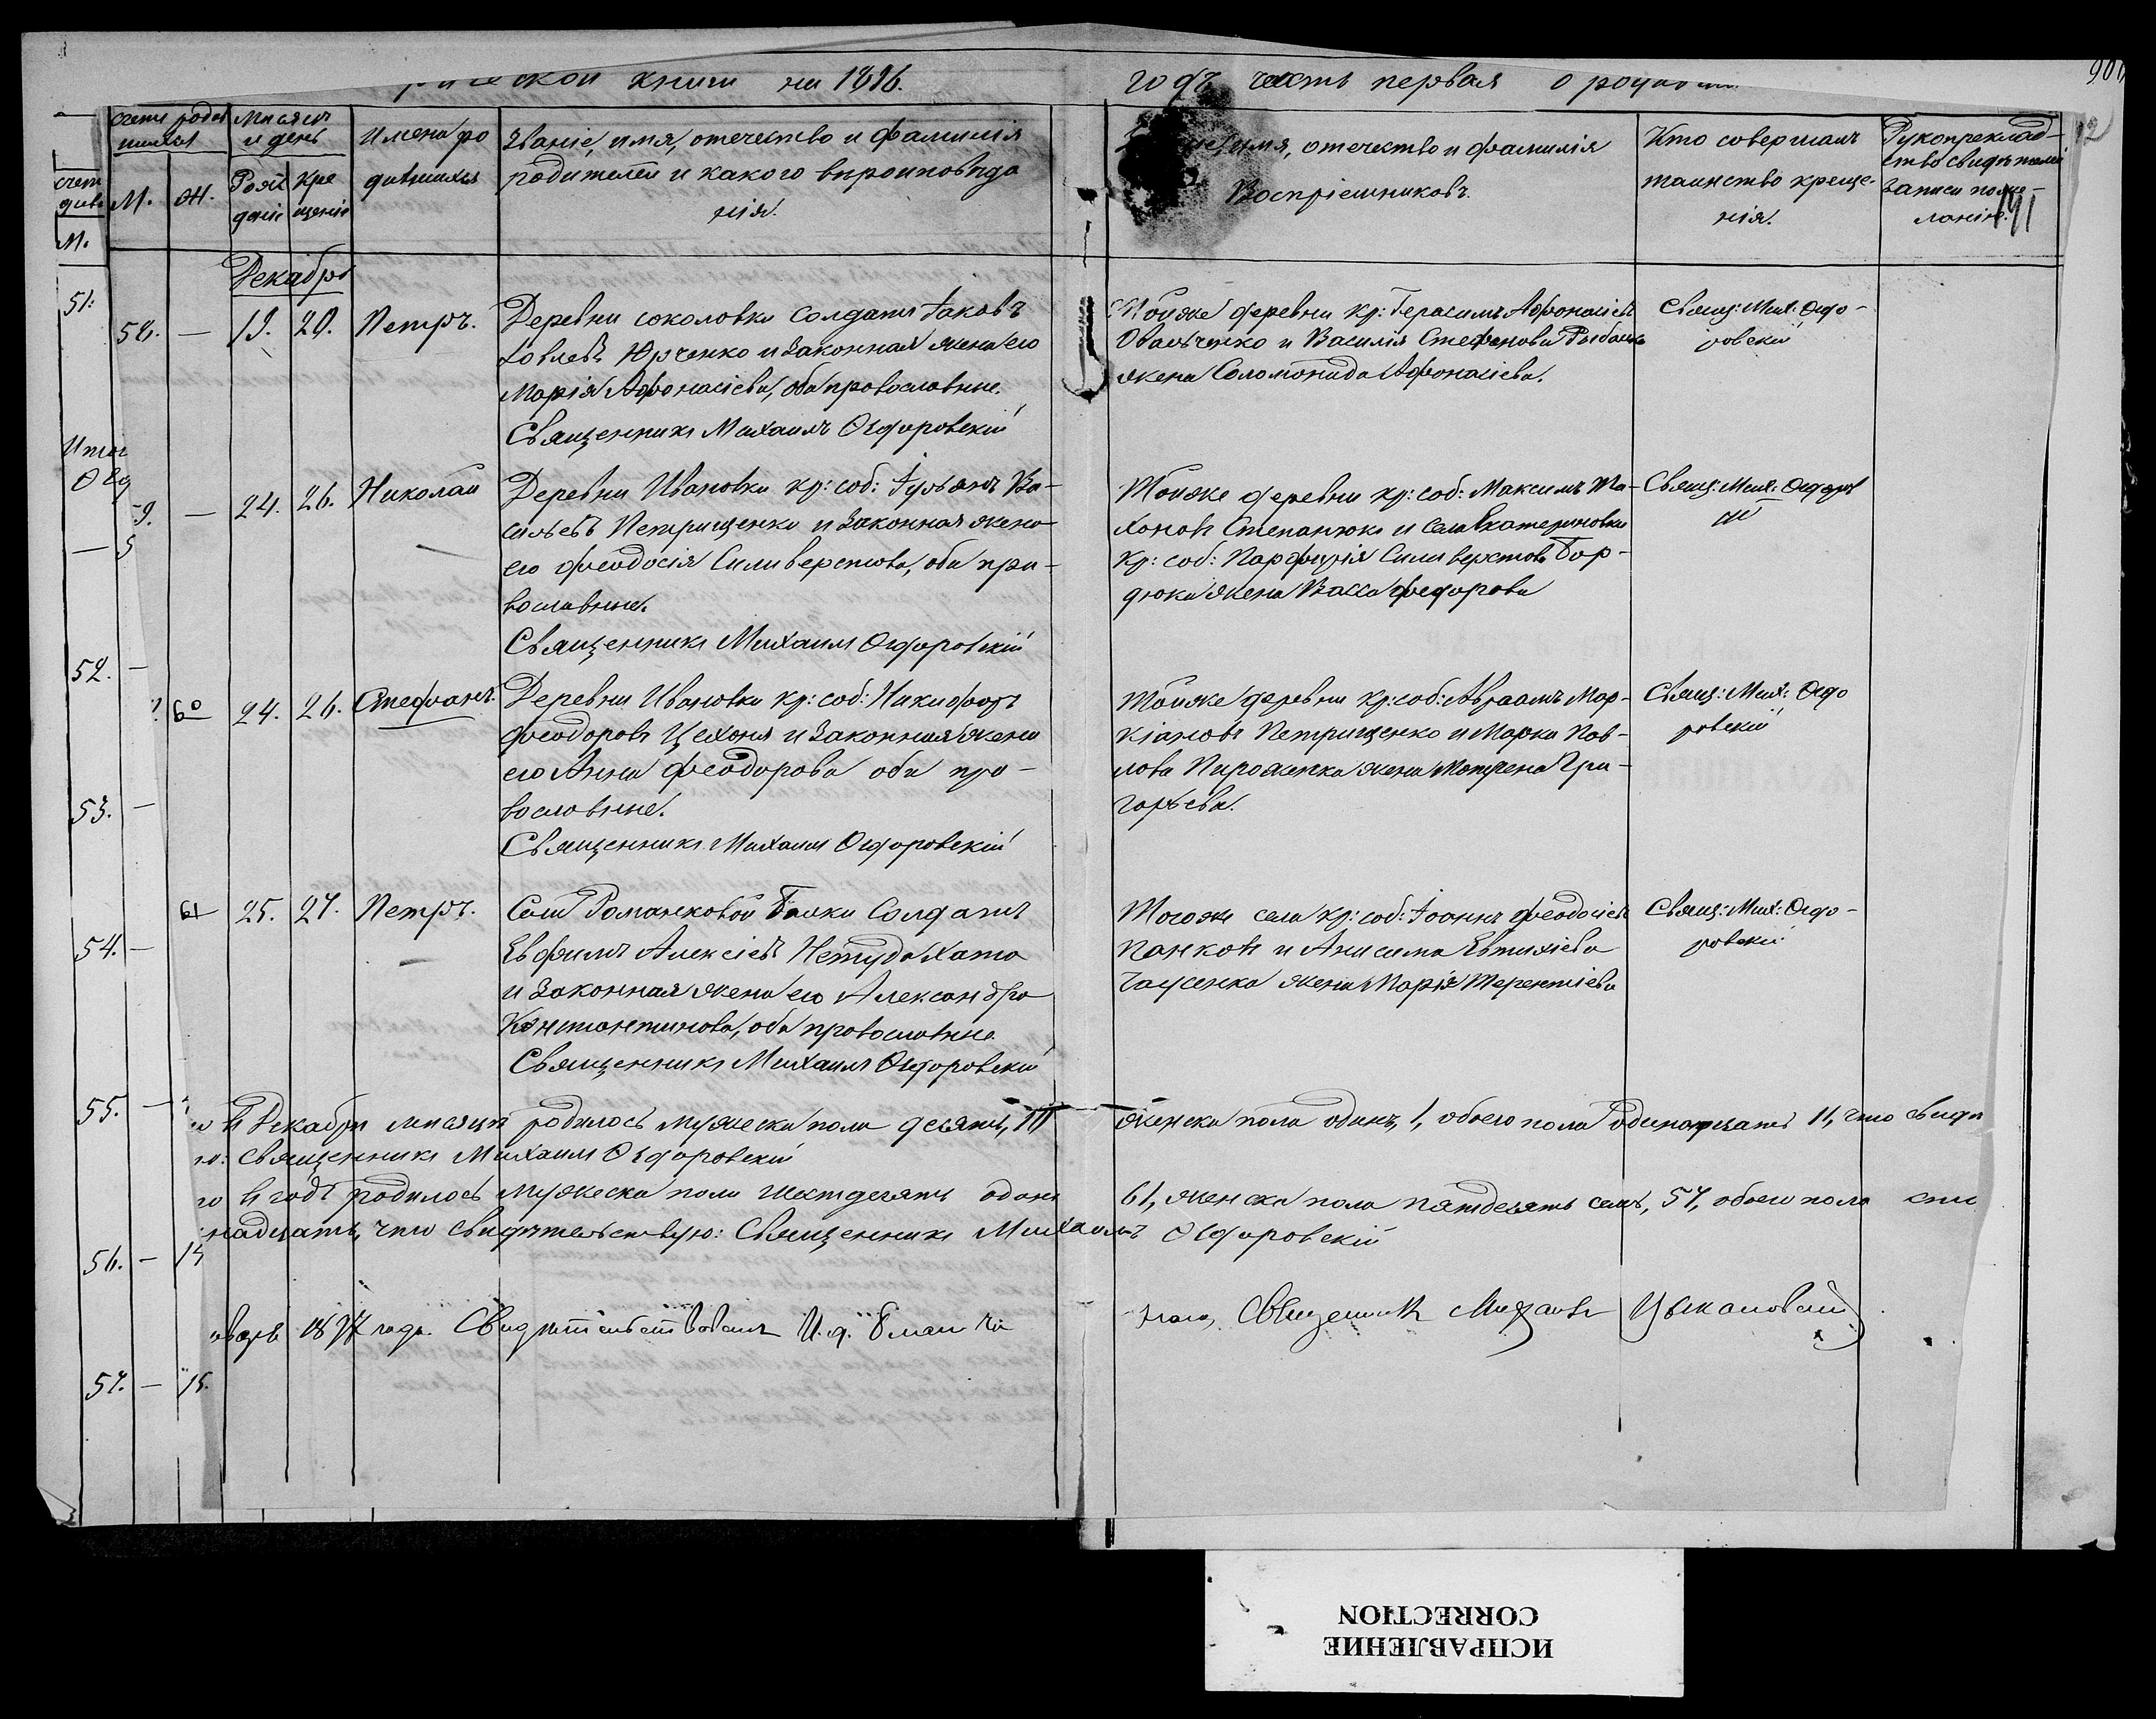 рической книги на 1896.
годъ часть первая о родив
901
12
191
счетъ родив
шихся
Мѣсяцъ
и день
Имена ро
дившихся
Званіе, имя, отечество и фамилія
родителей и какого вѣроисповѣда
нія.
имя, отечество и фамилія
Воспріемниковъ.
Кто совершалъ
таинство креще-
нія.
Рукоприклад-
ство свидѣтелей
записи по же-
ланію.
М. Ж.
Рож
деніе
Кре
щеніе
М.
Декабрь
58. — 19. 20. Петръ.
Деревни Соколовки Солдатъ Іаковъ
Іовлевъ Юрченко и законная жена его
Марія Афонасіева, оба православные.
Священникъ Михаилъ Огдоровскій
Тойже деревни кр: Герасимъ Афонасіевъ
Овальченко и Василія Стефанова Рыбалка
жена Соломонида Афонасіева.
Свящ: Мих: Огдо-
ровскій
9. — 24. 26. Николай
Деревни Ивановки кр: соб: Іуліанъ Ва-
сильевъ Петрищенко и законная жена
его Феодосія Сильверстова, оба пра-
вославные.
Священникъ Михаилъ Огдоровскій
Тойже деревни кр: соб: Максимъ Ти-
хоновъ Степанюкъ и села Екатериновки
кр: соб: Парфирія Сильверстова Бор-
дюка жена Васса Федорова
Свящ: Мих: Огдоровс
ій
60 24. 26. Стефанъ.
Деревни Ивановки кр: соб: Никифоръ
Феодоровъ Цехоня и законная жена
его Анна Феодорова оба пра-
вославные.
Священникъ Михаилъ Огдоровскій
Тойже деревни кр: соб: Авраамъ Мар-
кіановъ Петрищенко и Марка Пав-
лова Пироженка жена Матрена Гри-
горьева.
Свящ: Мих: Огдо
ровскій
61 25. 27. Петръ.
Села Романковой Балки Солдатъ
Евфимъ Алексіевъ Нетудахата
и законная жена его Александра
Константинова, оба православные.
Священникъ Михаилъ Огдоровскій
Тогоже села кр: соб: Іоаннъ Феодосіевъ
Панковъ и Анисима Евтихіева
Гаусенка жена Марія Терентіева
Свящ: Мих: Огдо-
ровскій
въ Декабрѣ мѣсяцѣ родилось мужеска пола десять, 10 женска пола одинъ, 1, обоего пола одинадцать 11, что свидѣ
ю: Священникъ Михаилъ Огдоровскій
въ годъ родилось мужеска пола шестдесять одинъ 61, женска пола пятдесять семь, 57, обоего пола сто
надцать, что свидѣтельствую: Священникъ Михаилъ Огдоровскій
1897 года. Свидѣтельствовалъ И. д. Благочи
ннаго, Священникъ Михаилъ
51.
52. —
53. —
54. —
55. —
56. — 14
57. — 15.
ИСПРАВЛЕНИЕ
CORRECTION